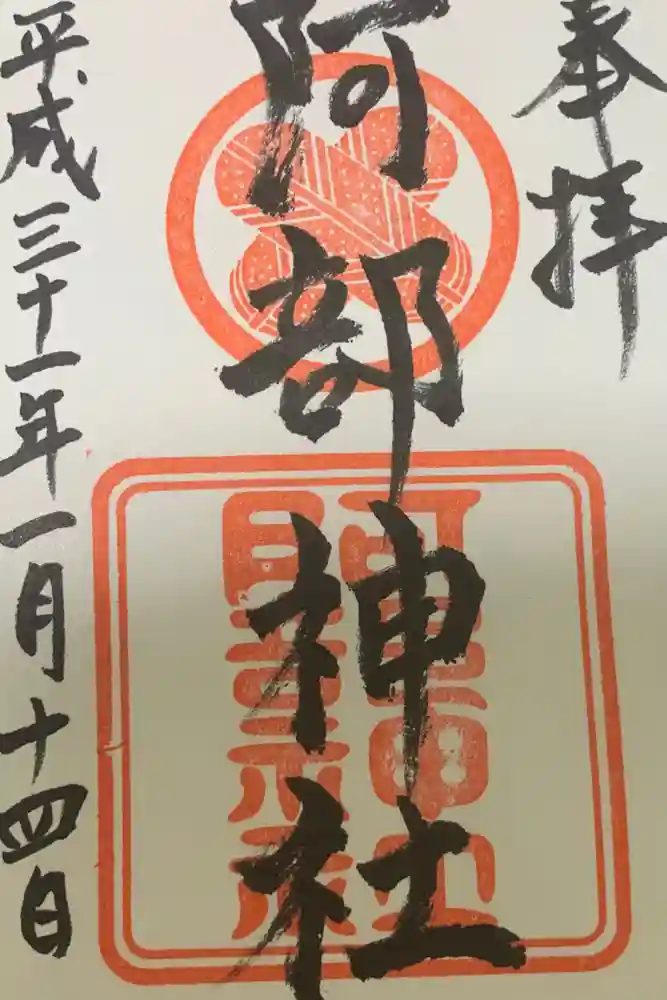 奉拝
阿部神社
平成三十一年一月十四日